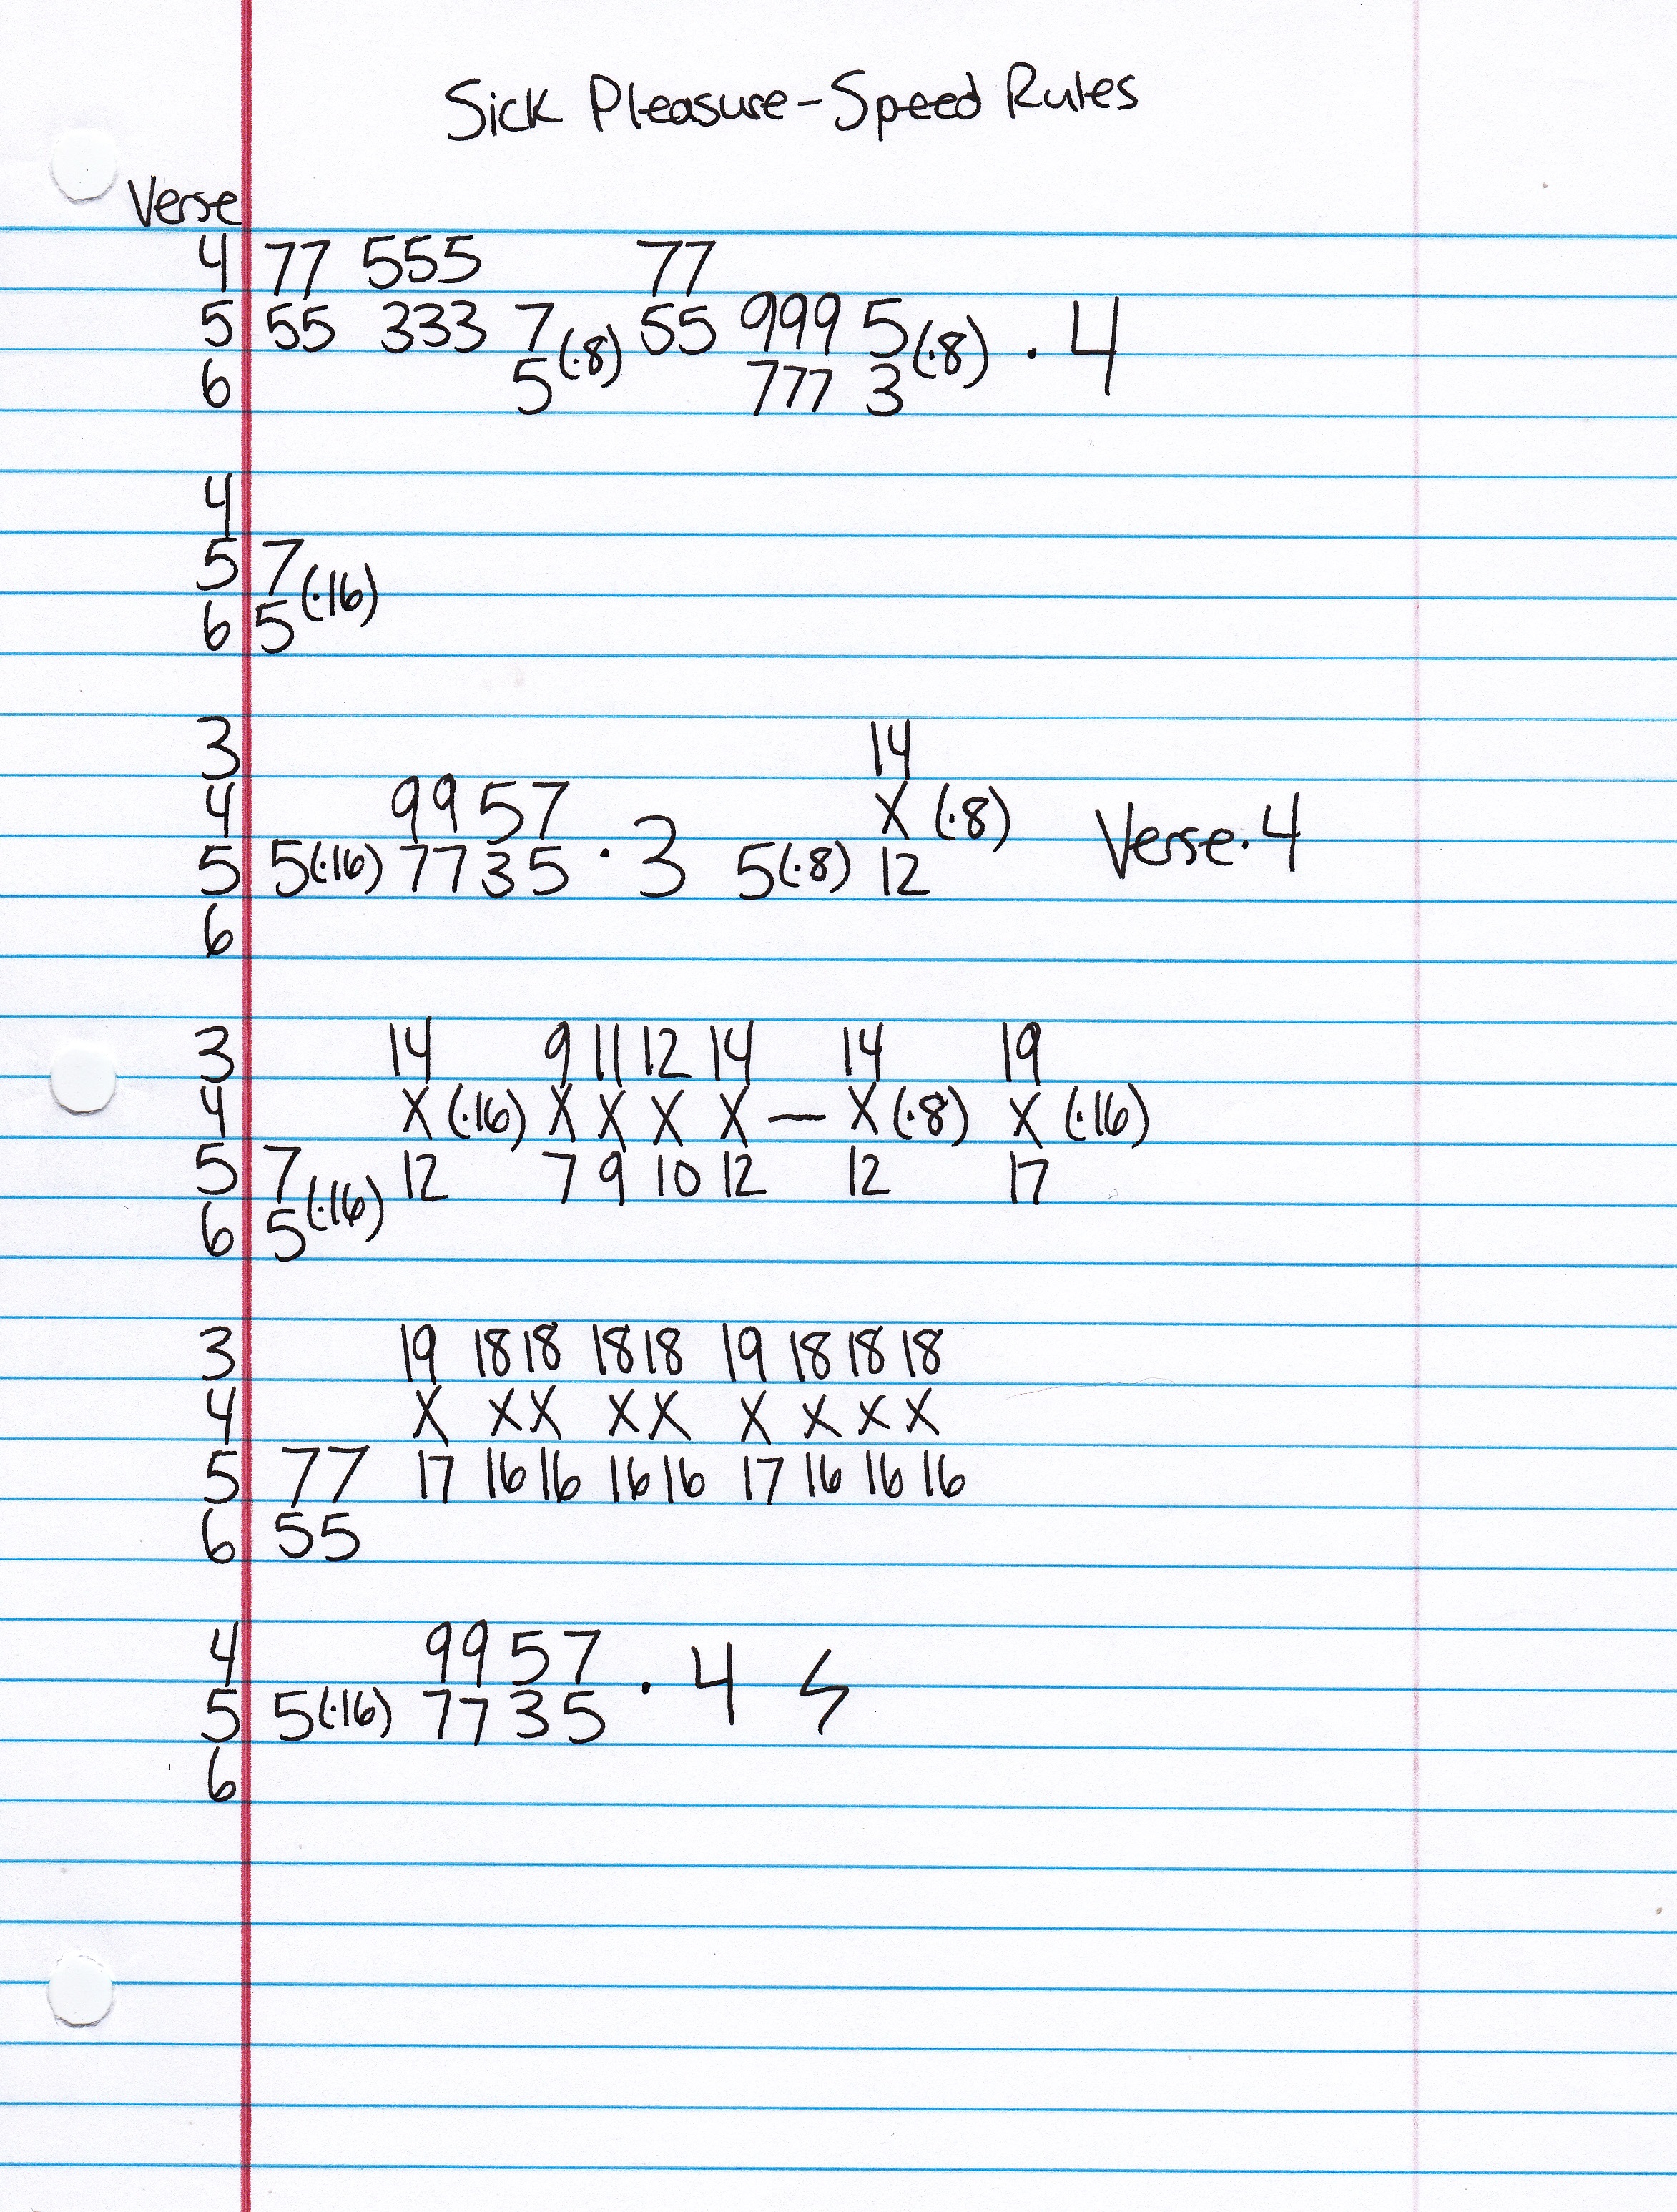 Sick Pleasure-Speed Rules
Verse
4 77 555 77
5 55 333 7(·8) 55 999 5(·8) · 4
6 5 777 3
4
5 7(·16)
6 5
3 14
4 99 57 X (·8)
5 5(·16) 7735 · 3 5(·8) 12 Verse·4
6
3 14 9 11 12 14 14 19
4 X (·16) X X X X — X (·8) X (·16)
5 7(·16) 12 7 9 10 12 12 17
6 5
3 19 18 18 18 18 19 18 18 18
4 X X X X X X X X X
5 77 17 16 16 16 16 17 16 16 16
6 55
4 99 57
5 5(·16) 7735 · 4
6